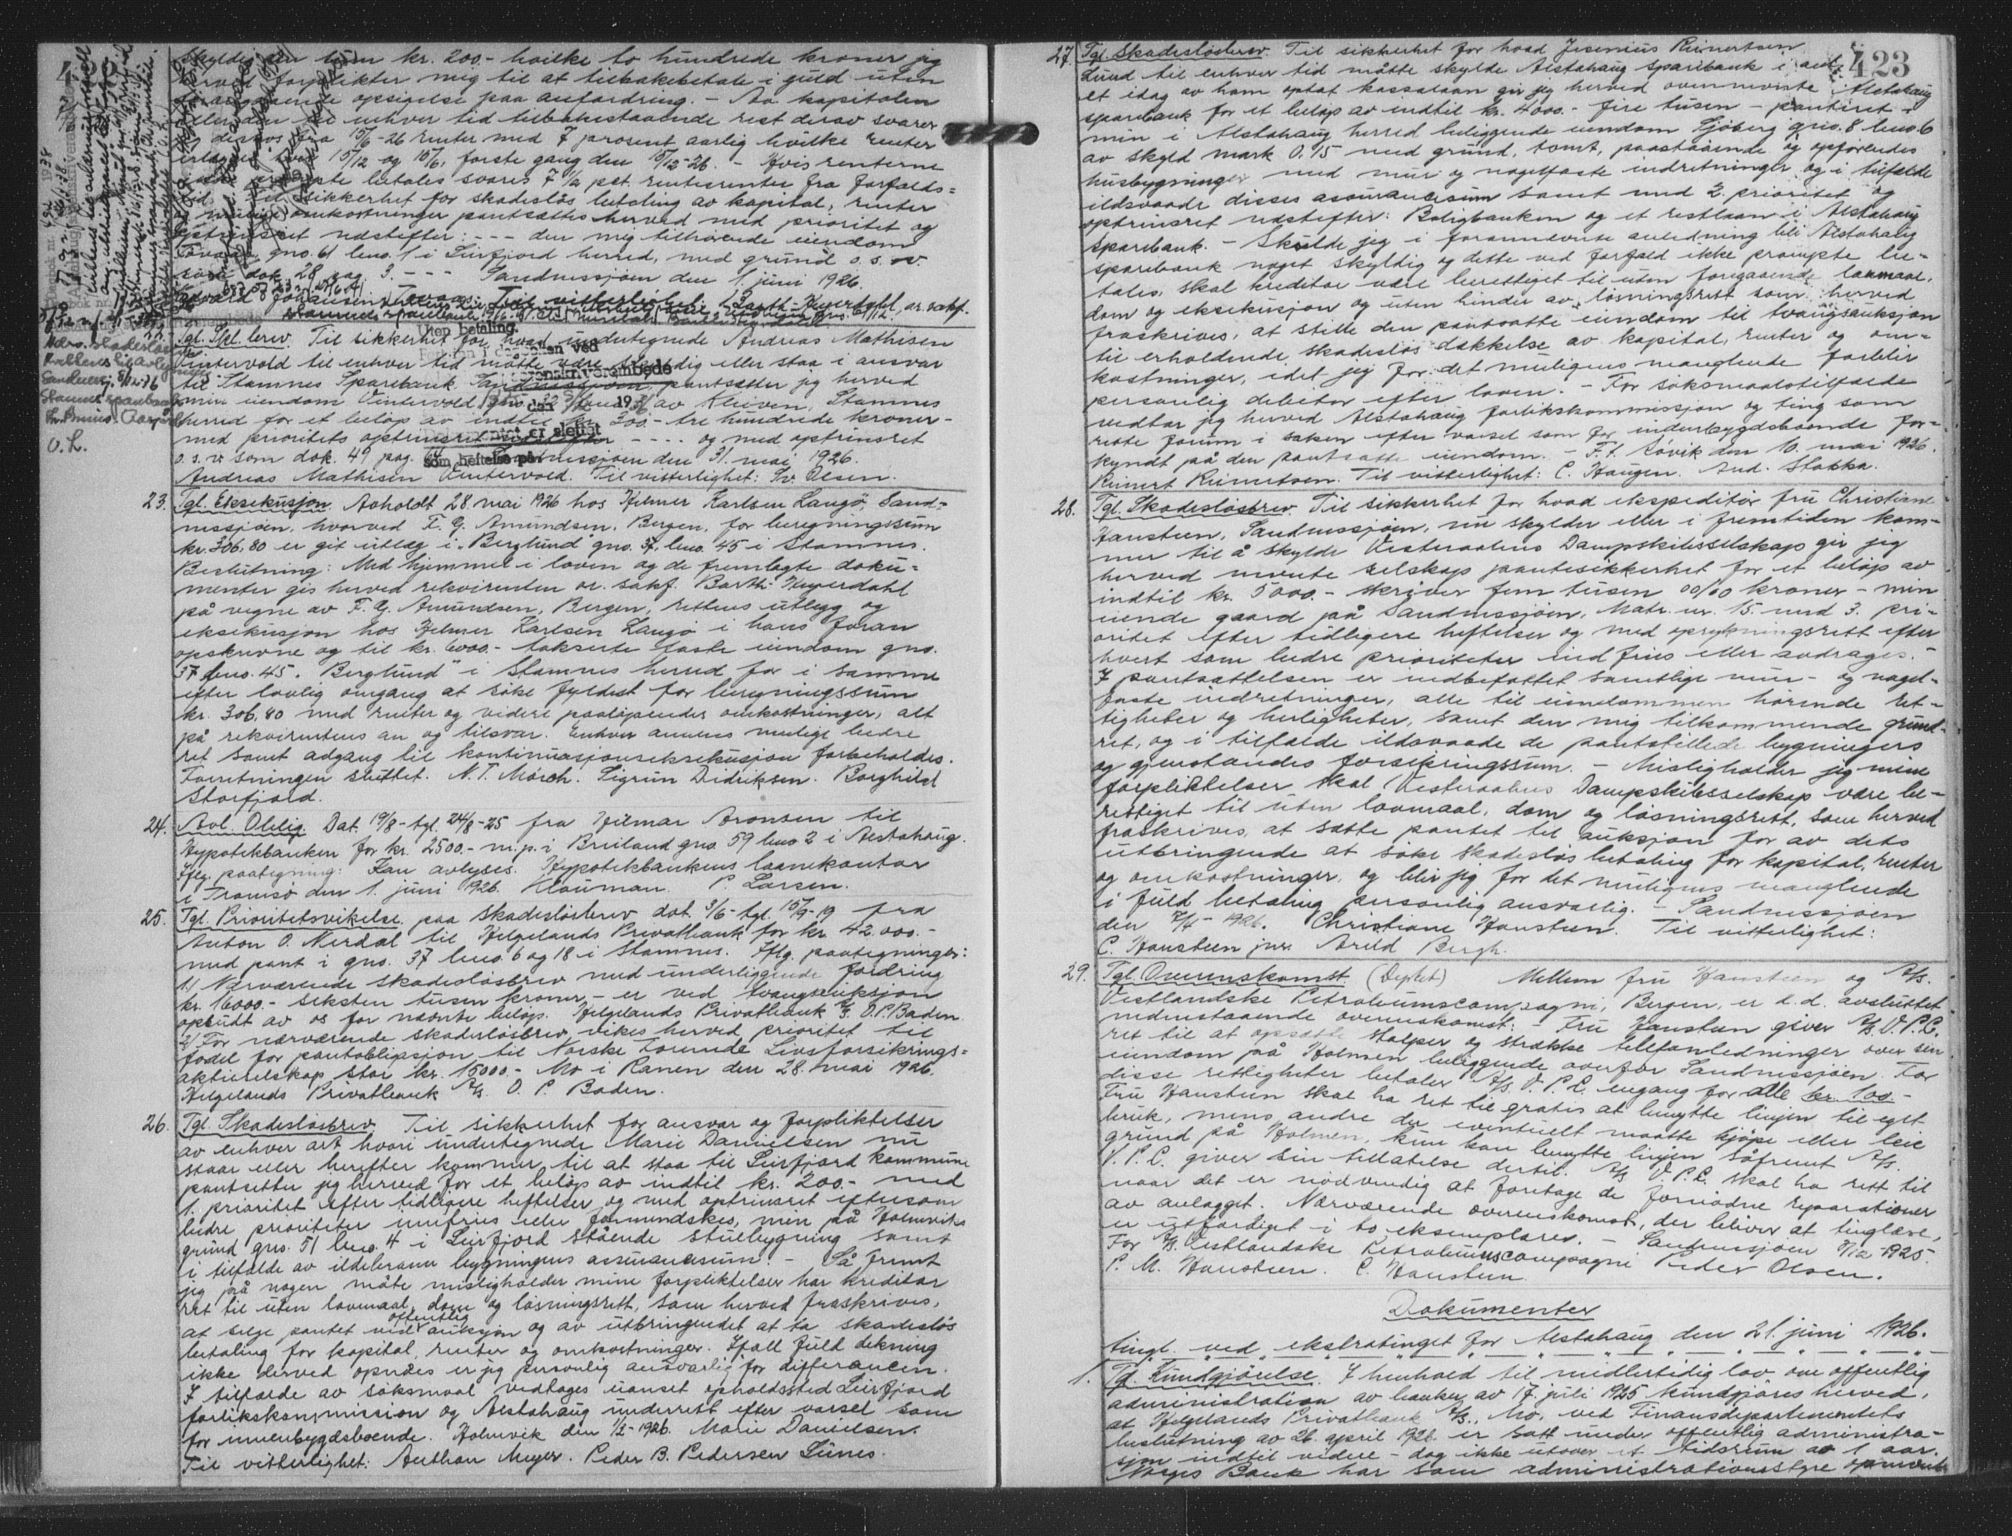 skyldig den sum kr. 200.- hvilke to hundrede kroner jeg
herved forplikter mig til at tilbakebetale i guld uten
foregaaende opsigelse paa anfordring. - Av kapitalen
eller den til enhver tid tilbakestaaende rest derav svarer
jeg dessuten fra 15/6-26 renter med 7 procent aarlig hvilke renter
erlægges hver 15/12 og 15/6, første gang den 15/12-26. - Hvis renterne
ikke betales svares 7 1/2 pct. rentesrenter fra forfalds=
tid. Til sikkerhet for skadesløs betaling av kapital, renter
og mulige omkostninger pantsættes herved med prioritet og
optrinsret næstefter: --- den mig tilhørende eiendom
gno. 61 bno. 1 i Leirfjord herred, med grund o.s.v.
som dok. 28 pag. 3. --- Sandnessjøen den 1 juni 1926.
Edvard Johansen. Til vitterlighet: Barth-Heyerdahl, or. sakf.
Uten betaling.
Tgl. Skl. brev. Til sikkerhet for hvad undertegnede Andreas Mathisen
Vintervold til enhver tid måtte være skyldig eller staa i ansvar
til Stamnes Sparebank Sandnessjøen pantsetter jeg herved
min eiendom Vintervold gno. 32 bno. av Kleiven, Stamnes
herred for et beløp av indtil kr. 300.- tre hundrede kroner-
med prioritets optrinsret næstefter ---- og med optrinsret
er slettet
o.s.v. som dok. 49 pag. Sandnessjøen den 31. mai 1926.
som heftelse på
Andreas Mathisen Vintervold. Til vitterlighet: W. Olsen.
23. Tgl. Eksekusjon Avholdt 28 mai 1926 hos Hilmer Karlsen Langø, Sand=
nessjøen, hvorved F. G. Amundsen, Bergen, for beregningssum
kr. 306,80 er git utlæg i "Berglund" gno. 37, bno. 45 i Stamnes.
Beslutning: Med hjemmel i loven og de fremlagte doku=
menter gis herved rekvirenten or. sakf. Barth-Heyerdahl
på vegne av F. G. Amundsen, Bergen, rettens utlegg og
eksekusjon hos Hilmer Karlsen Langø i hans foran
opskrevne og til kr. 6000.- takserte faste eiendom gno.
37 bno. 45. "Berglund" i Stamnes herred for i samme
efter lovlig omgang at søke fyldest for beregningssum
kr. 306,80 med renter og videre paaløpendes omkostninger, alt
på rekvirentens an og tilsvar. Enhver annens mulige bedre
ret samt adgang til kontinuasjonseksekusjon forbeholdes.
Forretningen sluttet. N. T. Mørch. Sigrun Didriksen. Borghild
Storfjord.
24. Avl. Oblig. Dat. 19/8- tgl. 24/8-25 fra Hilmar Aronsen til
Hypotekbanken for kr. 2500.- m.p. i Breiland gno. 59 bno 2 i Alstahaug.
Iflg. paategning: Kan avlyses. Hypotekbankens laanekontor
i Tromsø den 1. juni 1926. Klouman. P. Larsen.
25. Tgl. Prioritetsvikelse paa skadesløsbrev dat. 3/6- tgl. 15/9-19 fra
Anton O. Nerdal til Helgelands Privatbank for kr 42000.-
med pant i gno. 37 bno. 6 og 18 i Stamnes. Iflg. paategninger:
1/ Nærværende skadesløsbrev med underliggende fordring
kr. 16000.- seksten tusen kroner - er ved tvangsauksjon
opbudt av os for nævnte beløp. Helgelands Privatbank A/S. O. P. Baden.
2/ For nærværende skadesløsbrev vikes herved prioritet til
fordel for pantobligasjon til Norske Forenede Livsforsikrings=
aktieselskap stor kr. 15000.- Mo i Ranen den 28 mai 1926.
Helgelands Privatbank A/S. O. P. Baden.
26. Tgl. Skadesløsbrev. Til sikkerhet for ansvar og forpliktelser
av enhver art hvori undertegnede Marie Danielsen nu
staar eller herefter kommer til at staa til Leirfjord kommune
pantsetter jeg herved for et beløp av indtil kr. 200.- med
1. prioritet efter tidligere heftelser og med optrinsret eftersom
bedre prioriteter innfries eller formindskes, min på Holmviks
grund gno. 51 bno. 4 i Leirfjord stående stuebygning samt
i tilfelde av ildebrann bygningens assuransesum. - Så fremt
jeg på nogen måte misligholder mine forpliktelser har kreditor
ret til uten lovmaal, dom og løsningsrett, som herved fraskrives,
at selge pantet ved offentlig auksjon og av utbringendet at ta skadesløs
betaling for kapital, renter og omkostninger. Ifall fuld dekning
ikke derved opnåes er jeg personlig ansvarlig for differancen.
I tilfælde av søksmaal vedtages uanset opholdssted Leirfjord
forlikskommission og Alstahaug underrett efter varsel som
for innenbygdsboende. Holmvik den 1/2-1926. Marie Danielsen.
Til vitterlighet: Anthon Meyer. Peder B. Pedersen Leines.
423
27. Tgl. Skadesløsbrev. Til sikkerhet for hvad Jesenius Reinertsen
Lund til enhver tid måtte skylde Alstahaug sparebank i anl.
et idag av ham optat kassalaan gir jeg herved ovennevnte Alstahaug
sparebank for et beløp av indtil kr. 4000.- fire tusen - panteret i
min i Alstahaug herred beliggende eiendom Sjøberg gno. 8 bno. 6
av skyld mark 0.15 med grund, tomt, paastaaende og opførendes
husbygninger med mur og nagelfaste indretninger og i tilfælde
ildsvaade disses assurancesum samt med 2. prioritet og
optrinsret næstefter: Boligbanken og et restlaan i Alstahaug
sparebank. - Skulde jeg i forannevnte anledning bli Alstahaug
sparebank noget skyldig og dette ved forfald ikke prompte be-
tales, skal kreditor være berettiget til uten foregaaende lovmaal,
dom og eksekusjon og uten hinder av løsningsrett som herved
fraskrives, at stille den pantsatte eiendom til tvangsauksjon
til erholdende skadesløs dækkelse av kapital, renter og om-
kostninger, idet jeg for det muligens manglende forblir
personlig debitor efter loven. - For søksmaalstilfælde
vedtar jeg herved Alstahaug forlikskommissjon og ting som
rette forum i saken efter varsel som for indenbygdsboende for-
kyndt på den pantsatte eiendom. - F.t. Søvik den 10. mai 1926.
Reinert Reinertsen. Til vitterlighet: C. Haugen. And. Stokka.
28. Tgl. Skadesløsbrev. Til sikkerhet for hvad ekspeditør fru Christiane
Hausteen, Sandnessjøen, nu skylder eller i fremtiden kom-
mer til å skylde Vesteraalens Dampskibsselskap gir jeg
herved nevnte selskap pantesikkerhet for et beløp av
indtil kr. 5000.- skriver fem tusen 00/00 kroner - min
eiende gaard på Sandnessjøen, Matr. nr. 15 med 3. pri-
oritet efter tidligere heftelser og med oprykningsrett efter
hvert som bedre prioriteter indfries eller avdrages. -
I pantsættelsen er indbefattet samtlige mur- og nagel-
faste indretninger, alle til eiendommen hørende ret-
tigheter og herligheter, samt den mig tilkommende grund-
ret, og i tilfælde ildsvaade de pantstillede bygningers
og gjenstandes forsikringssum. - Misligholder jeg mine
forpliktelser skal Vesteraalens Dampskibsselskap være be-
rettiget til uten lovmaal, dom og løsningsrett, som herved
fraskrives, at sætte pantet til auksjon for av dets
utbringende at søke skadesløs betaling for kapital, renter
og omkostninger, og blir jeg for det muligens manglende
i fuld betaling personlig ansvarlig. - Sandnessjøen
den 7/4 - 1926. Christiane Hausteen. Til vitterlighet:
C. Hausteen jnr. Arild Bergh.
29. Tgl. Overenskomst (Deplet) Mellem fru Hausteen og A/S.
Vestlandske Petroleumscompagni, Bergen, er d.d. avsluttet
nedenstaaende overenskomst: - Fru Hausteen giver A/S V.P.C.
ret til at opsætte stolper og strække telefonledninger over sin
eiendom på Holmen beliggende overfor Sandnessjøen. For
disse rettigheter betaler A/S V.P.C. engang for alle kr. 100.-
Fru Hausteen skal ha ret til gratis at benytte linjen til eget
bruk, mens andre der eventuelt maatte kjøpe eller leie
grund på Holmen, kun kan benytte linjen såfremt A/S.
V.P.C. giver sin tillatelse dertil. A/S V.P.C. skal ha rett til
naar det er nødvendig at foretage de fornødne reparationer
av anlegget. Nærværende overenskomst, der bliver at tinglæse,
er utfærdiget i to eksemplarer. - Sandnessjøen 9/12 1925.
For A/S. Vestlandske Petroleumscompagni Peder Olsen.
P. M. Hausteen. C. Hausteen.
Dokumenter
tingl. ved ekstratinget for Alstahaug den 21. juni 1926.
1. Tgl. Kundgjørelse. I henhold til midlertidig lov om offentlig
administration av banker av 17. juli 1925 kundgjøres herved,
at Helgelands Privatbank A/S., Mo, ved Finansdepartementets
beslutning av 26. april 1926 er satt under offentlig administra-
sjon indtil videre - dog ikke utover et tidsrum av 1 aar.
Norges Bank har som administrationsstyre opnevnt